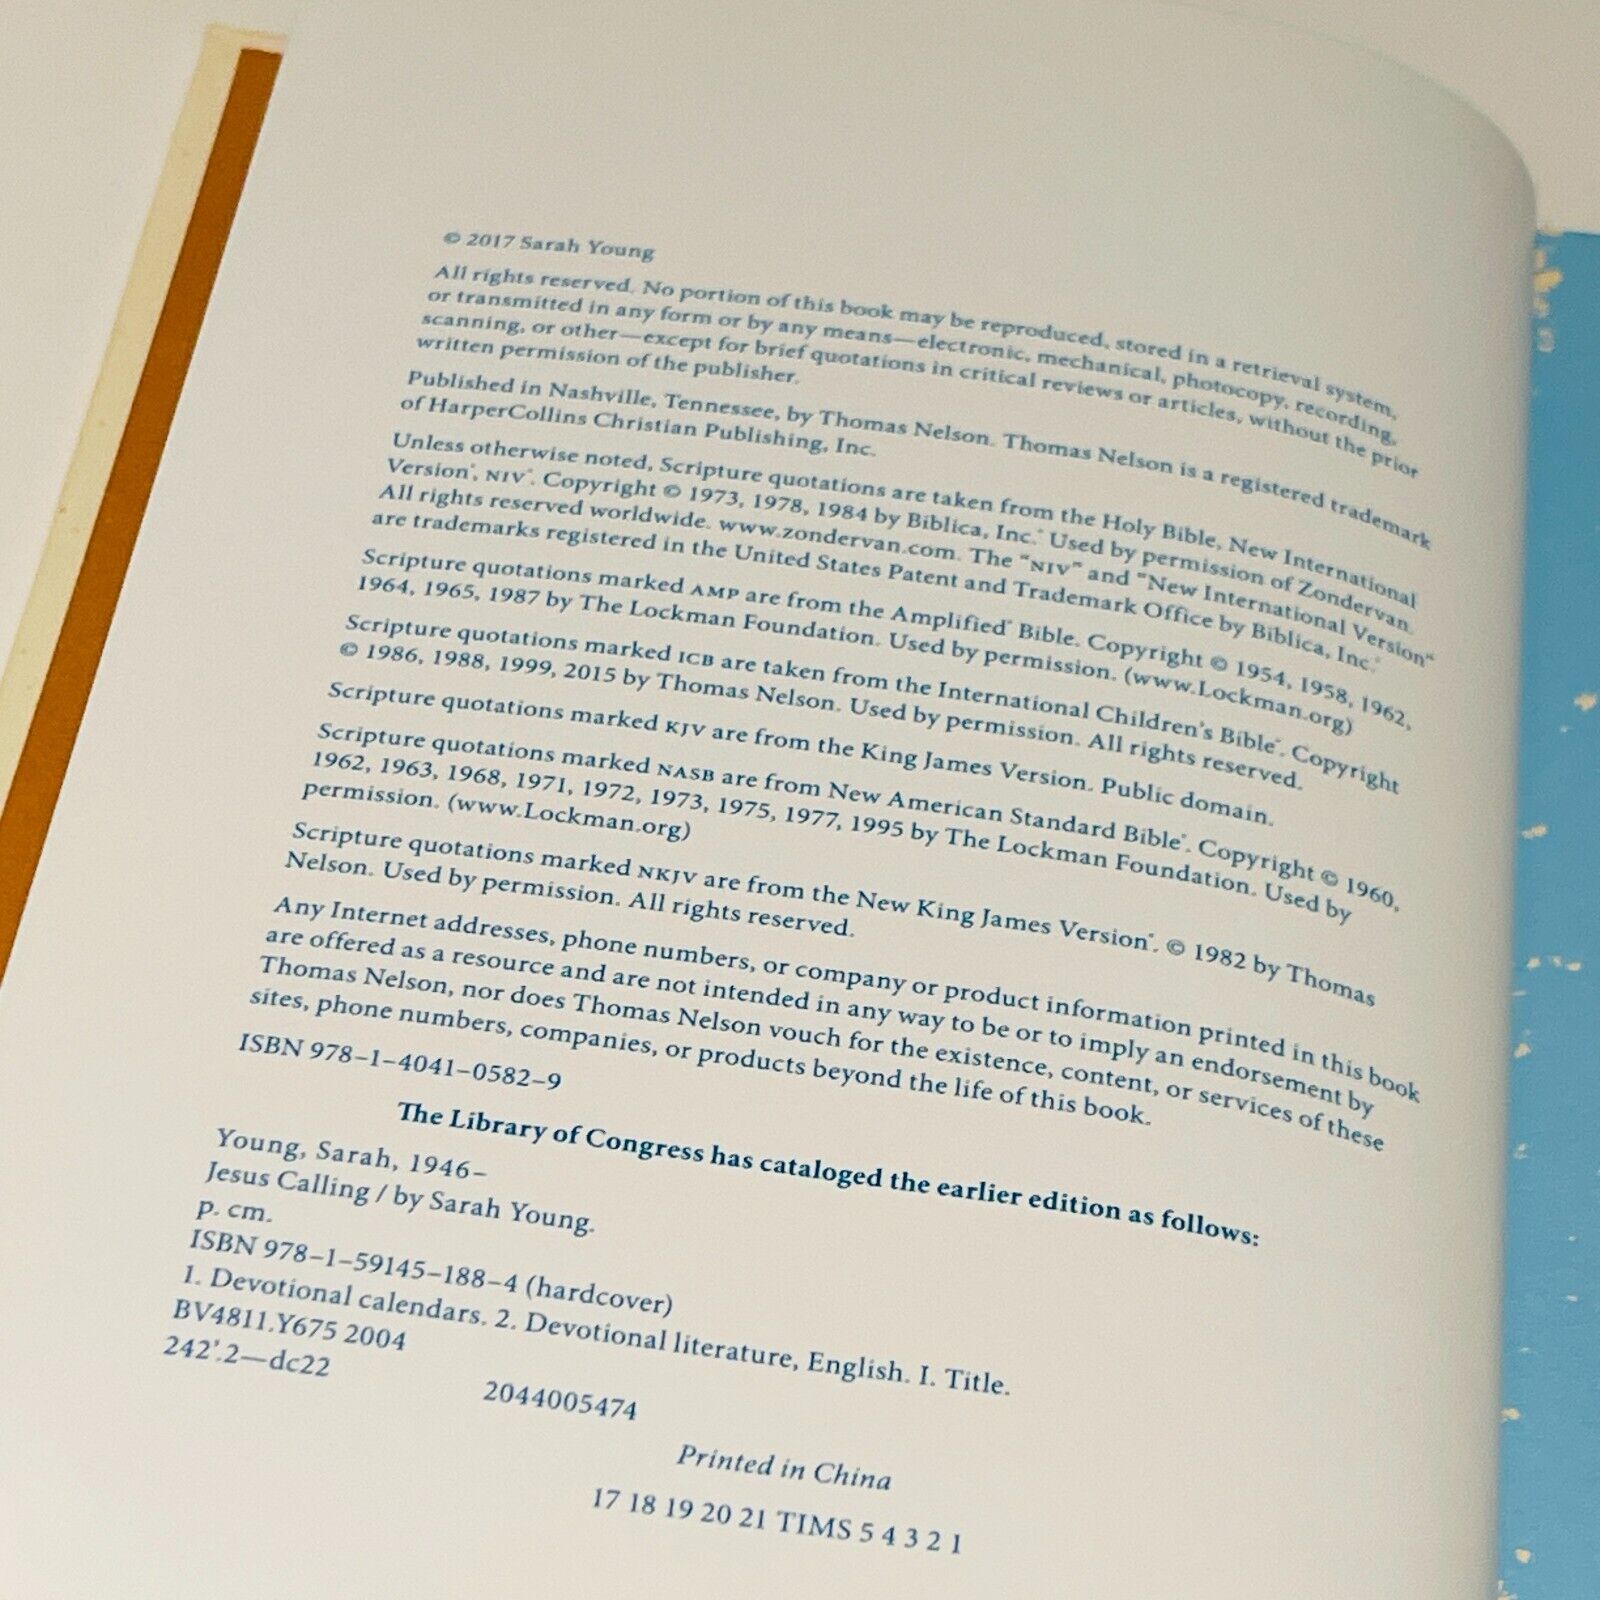 © 2017 Sarah Young
All rights reserved. No portion of this book may be reproduced, stored in a retrieval system,
or transmitted in any form or by any means—electronic, mechanical, photocopy, recording,
scanning, or other—except for brief quotations in critical reviews or articles, without the prior
written permission of the publisher.
Published in Nashville, Tennessee, by Thomas Nelson. Thomas Nelson is a registered trademark
of HarperCollins Christian Publishing, Inc.
Unless otherwise noted, Scripture quotations are taken from the Holy Bible, New International
Version®, NIV®. Copyright © 1973, 1978, 1984 by Biblica, Inc.® Used by permission of Zondervan.
All rights reserved worldwide. www.zondervan.com. The “NIV” and “New International Version”
are trademarks registered in the United States Patent and Trademark Office by Biblica, Inc.®
Scripture quotations marked AMP are from the Amplified® Bible. Copyright © 1954, 1958, 1962,
1964, 1965, 1987 by The Lockman Foundation. Used by permission. (www.Lockman.org)
Scripture quotations marked ICB are taken from the International Children’s Bible®. Copyright
© 1986, 1988, 1999, 2015 by Thomas Nelson. Used by permission. All rights reserved.
Scripture quotations marked KJV are from the King James Version. Public domain.
Scripture quotations marked NASB are from New American Standard Bible®. Copyright © 1960,
1962, 1963, 1968, 1971, 1972, 1973, 1975, 1977, 1995 by The Lockman Foundation. Used by
permission. (www.Lockman.org)
Scripture quotations marked NKJV are from the New King James Version®. © 1982 by Thomas
Nelson. Used by permission. All rights reserved.
Any Internet addresses, phone numbers, or company or product information printed in this book
are offered as a resource and are not intended in any way to be or to imply an endorsement by
Thomas Nelson, nor does Thomas Nelson vouch for the existence, content, or services of these
sites, phone numbers, companies, or products beyond the life of this book.
ISBN 978-1-4041-0582-9
The Library of Congress has cataloged the earlier edition as follows:
Young, Sarah, 1946–
Jesus Calling / by Sarah Young.
p. cm.
ISBN 978-1-59145-188-4 (hardcover)
1. Devotional calendars. 2. Devotional literature, English. I. Title.
BV4811.Y675 2004
242'.2—dc22
2044005474
Printed in China
17 18 19 20 21 TIMS 5 4 3 2 1